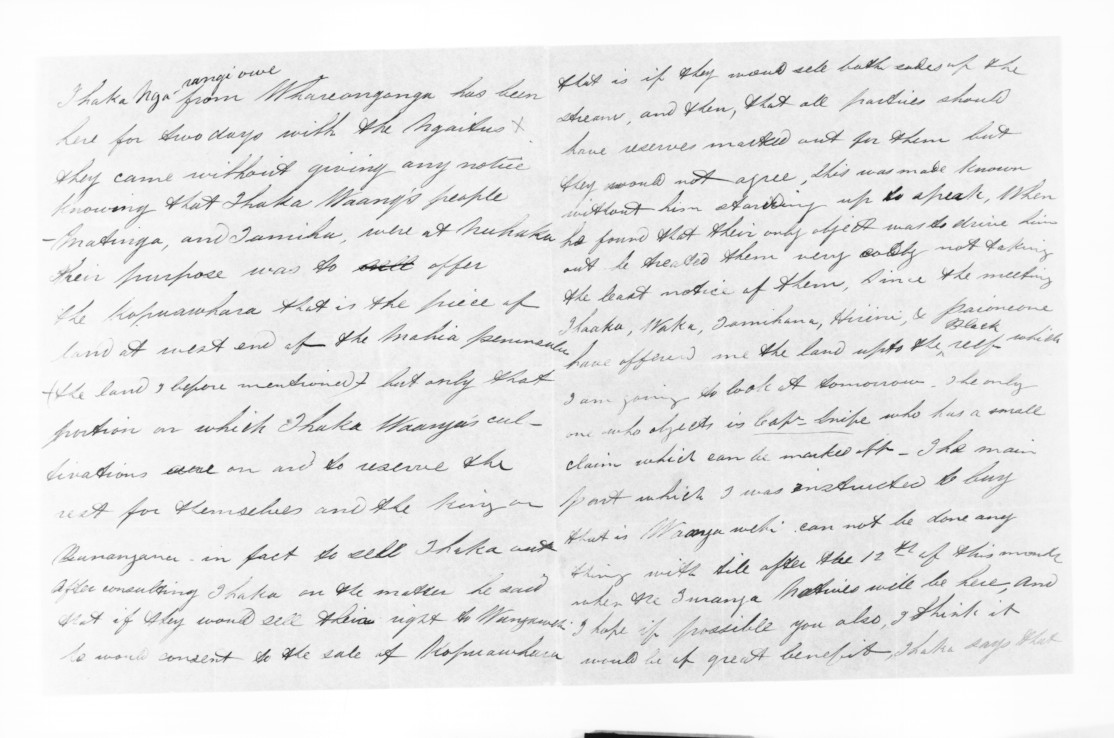 rangi owe
Ihaka Nga from Whareongonga has been
here for two days with the Ngaitus
they came without giving any notice
knowing that Ihaka Waanga's people
Matinga, and Tamihu, were at Nuhaka
their purpose was to sell offer
the Kopuawhara that is the piece of
land at west end of the Mahia peninsula
(the land I before mentioned) but only that
portion on which Ihaka Waanga's cul-
tivations were on and to reserve the
rest for themselves and the King or
in fact to sell Ihaka out
After consulting Ihaka on the matter he said
that if they would sell their right to Wangawehi
he would consent to the sale of Kopuawhara
that is if they would sell both sides of the
stream, and then, that all parties should
have reserves marked out for them but
they would not agree, this was made known
without him standing up to speak, When
he found that their only object was to drive him
out he treated them very coolly not taking
the least notice of them, Since the meeting
Ihaaka, Waka, Tamihana, Hirini, &
have offered me the land up to the Black reef which
I am going to look at tomorrow. The only
one who objects is Capn Snipe who has a small
claim which can be marked off - The main
part which I was instructed to buy
that is Waangawehi can not be done any
thing with till after the 12th of this month
when the Turanga Natives will be here, and
I hope if possible you also, I think it
would be of great benefit, Ihaka says that